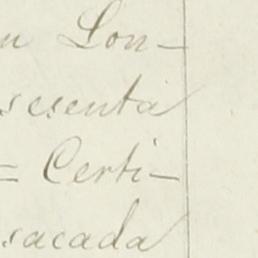 n Lon-
sesenta
= Certi-
sacada